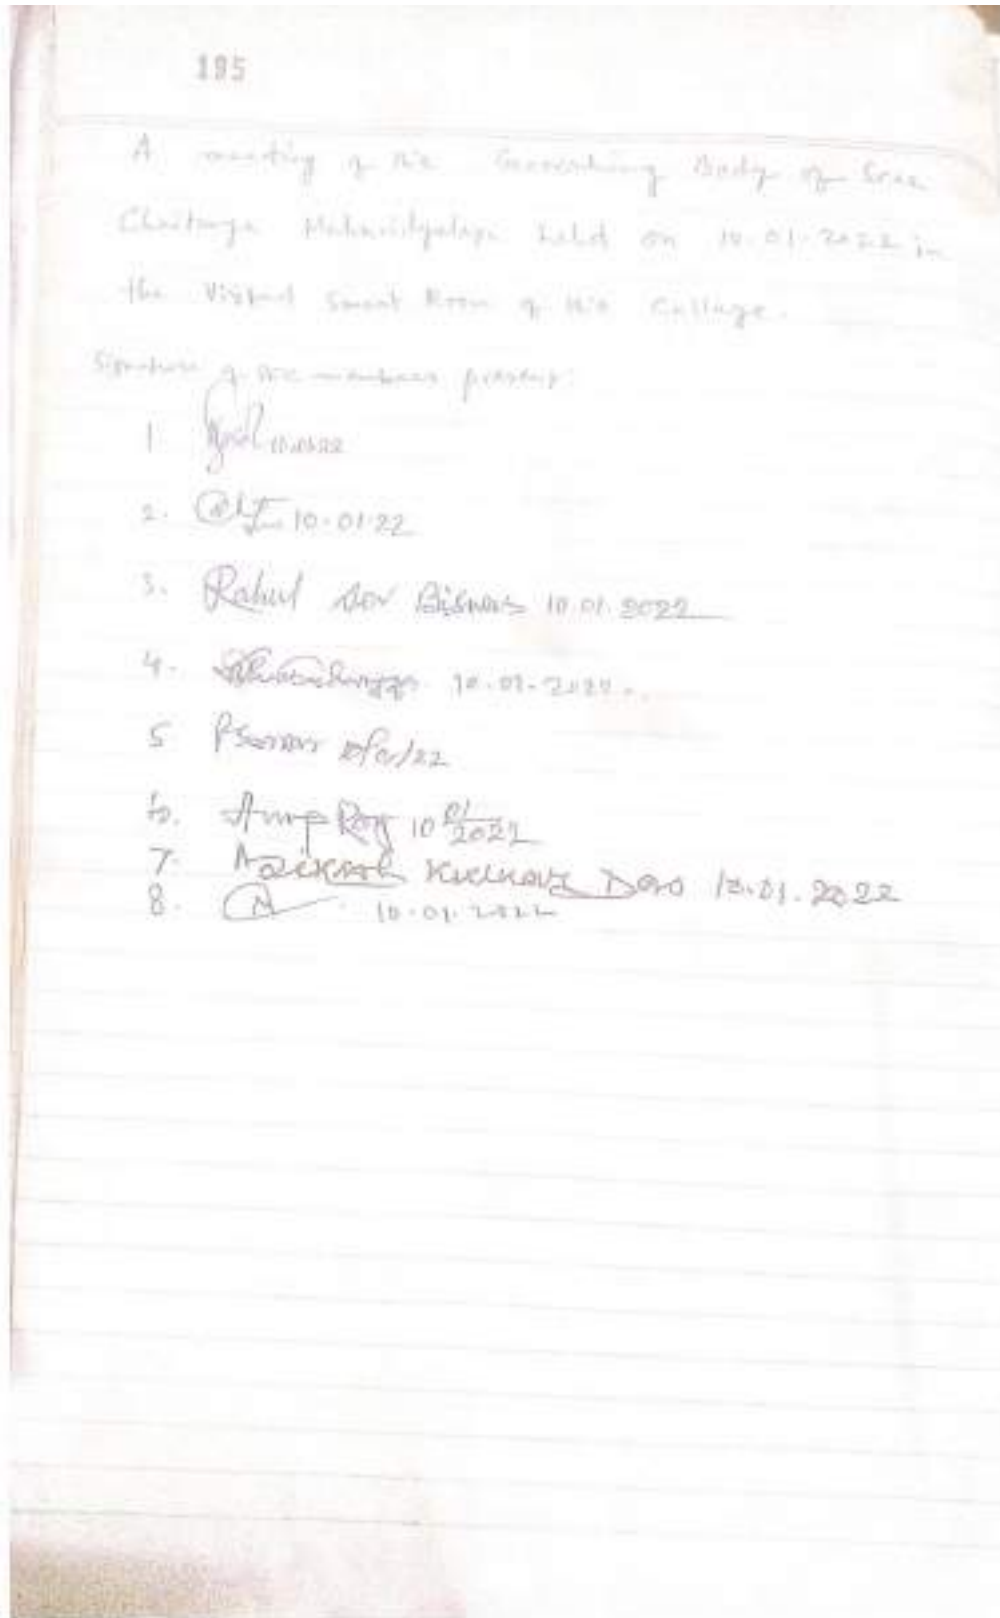 195
A meeting of the Governing Body of Sree
Chaitanya Mahavidyalaya held on 10.01.2022 in
the Virtual Smart Room of the College.
Signature of the members present:
1 10.01.22
2. 10.01.22
3. Rahul Biswas 10.01.2022
4. 10.01.2022.
5 10/01/22
6. Anup Roy 10/01/2022
7. Kumar Das 10.01.2022
8. 10.01.2022